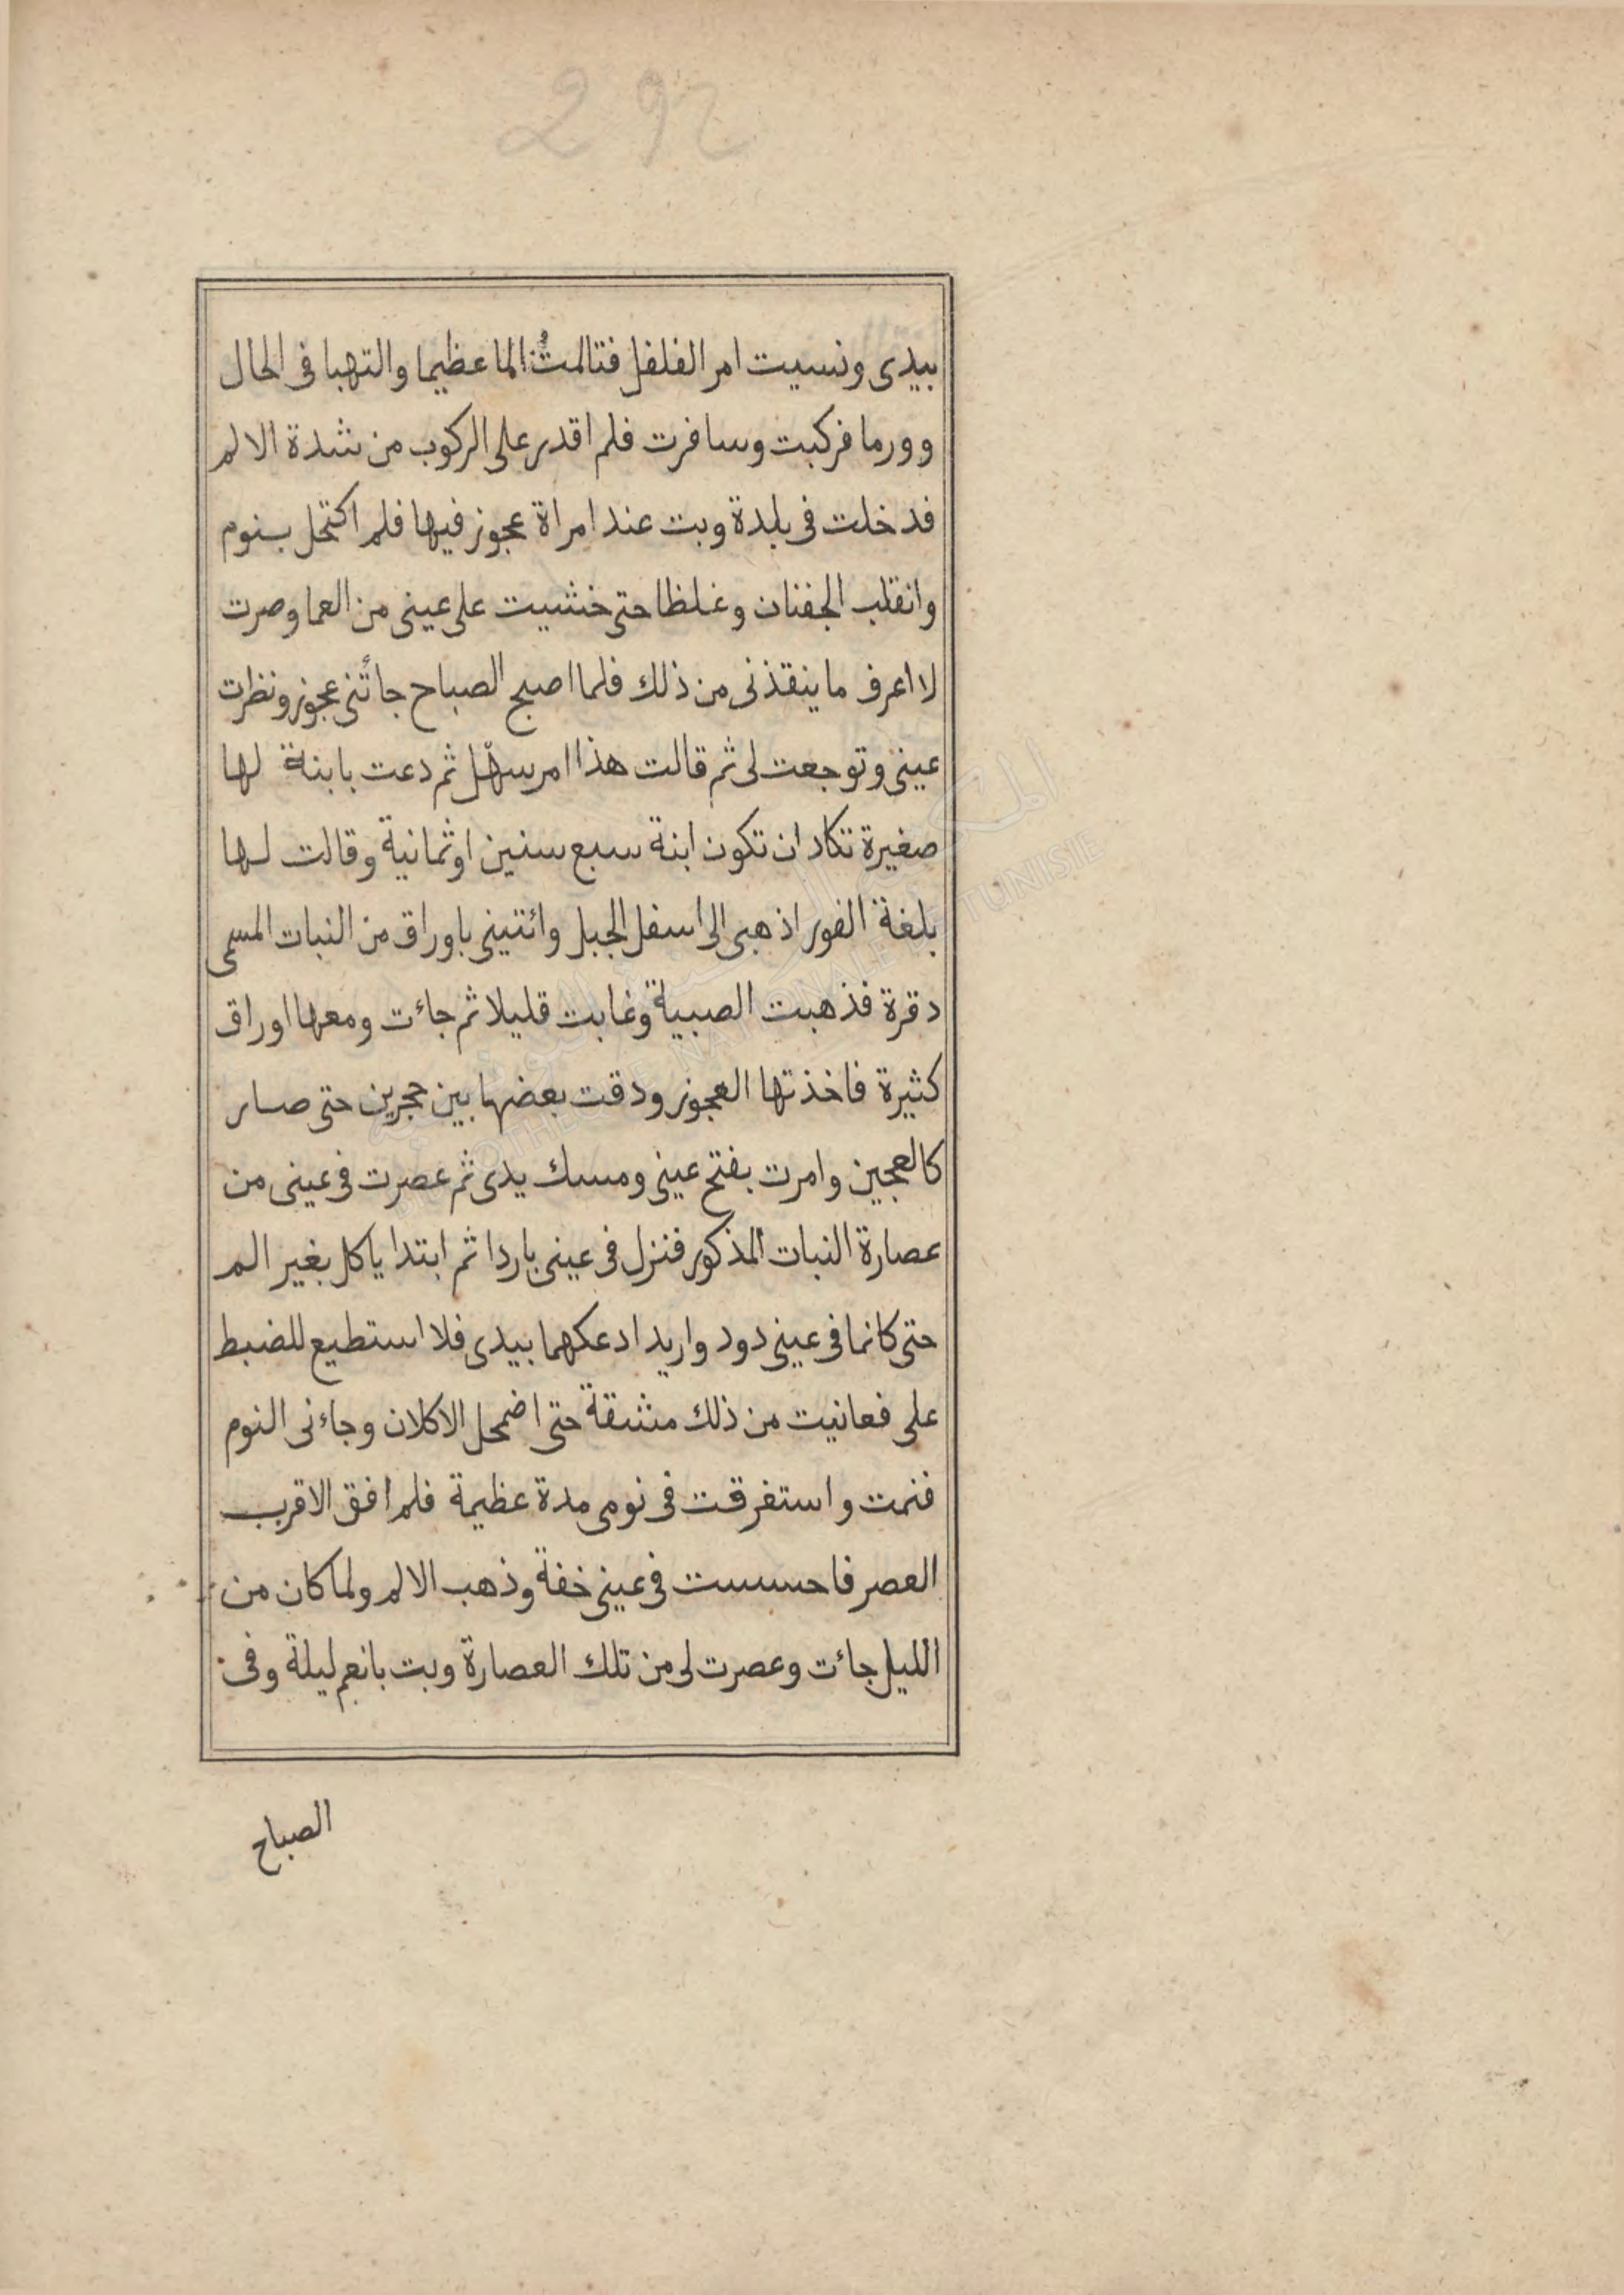 292
بيدى ونسيت امر الفلفل فتالمتُ الما عظيما والتهبا فى الحال
وورما فركبت وسافرت فلم اقدر على الركوب من شدة الالم
فدخلت فى بلدة وبت عند امراة عجوز فيها فلم اكتحل بنوم
وانقلب الجفنان وغلظا حتى خشيت على عينى من العما وصرت
لا اعرف ما ينقذنى من ذلك فلما اصبح الصباح جائنى عجوز ونظرت
عينى وتوجعت لى ثم قالت هذا امر سهل ثم دعت بابنة لها
صغيرة تكاد ان تكون ابنة سبع سنين او ثمانية وقالت لها
بلغة الفور اذهبى الى اسفل الجبل وائتينى باوراق من النبات المسمى
دقرة فذهبت الصبية وغابت قليلا ثم جاءت ومعها اوراق
كثيرة فاخذتها العجوز ودقت بعضها بين حجرين حتى صار
كالعجين وامرت بفتح عينى ومسك يدى ثم عصرت فى عينى من
عصارة النبات المذكور فنزل فى عينى باردا ثم ابتدا ياكل بغير الم
حتى كانما فى عينى دود واريد ادعكهما بيدى فلا استطيع للضبط
على فعانيت من ذلك مشقة حتى اضمحل الاكلان وجاءنى النوم
فنمت واستغرقت فى نومى مدة عظيمة فلم افق الا قرب
العصر فاحسست فى عينى خفة وذهب الالم ولما كان من
الليل جاءت وعصرت لى من تلك العصارة وبت بانعم ليلة وفى
الصباح
BIBLIOTHEQUE NATIONALE TUNISIE